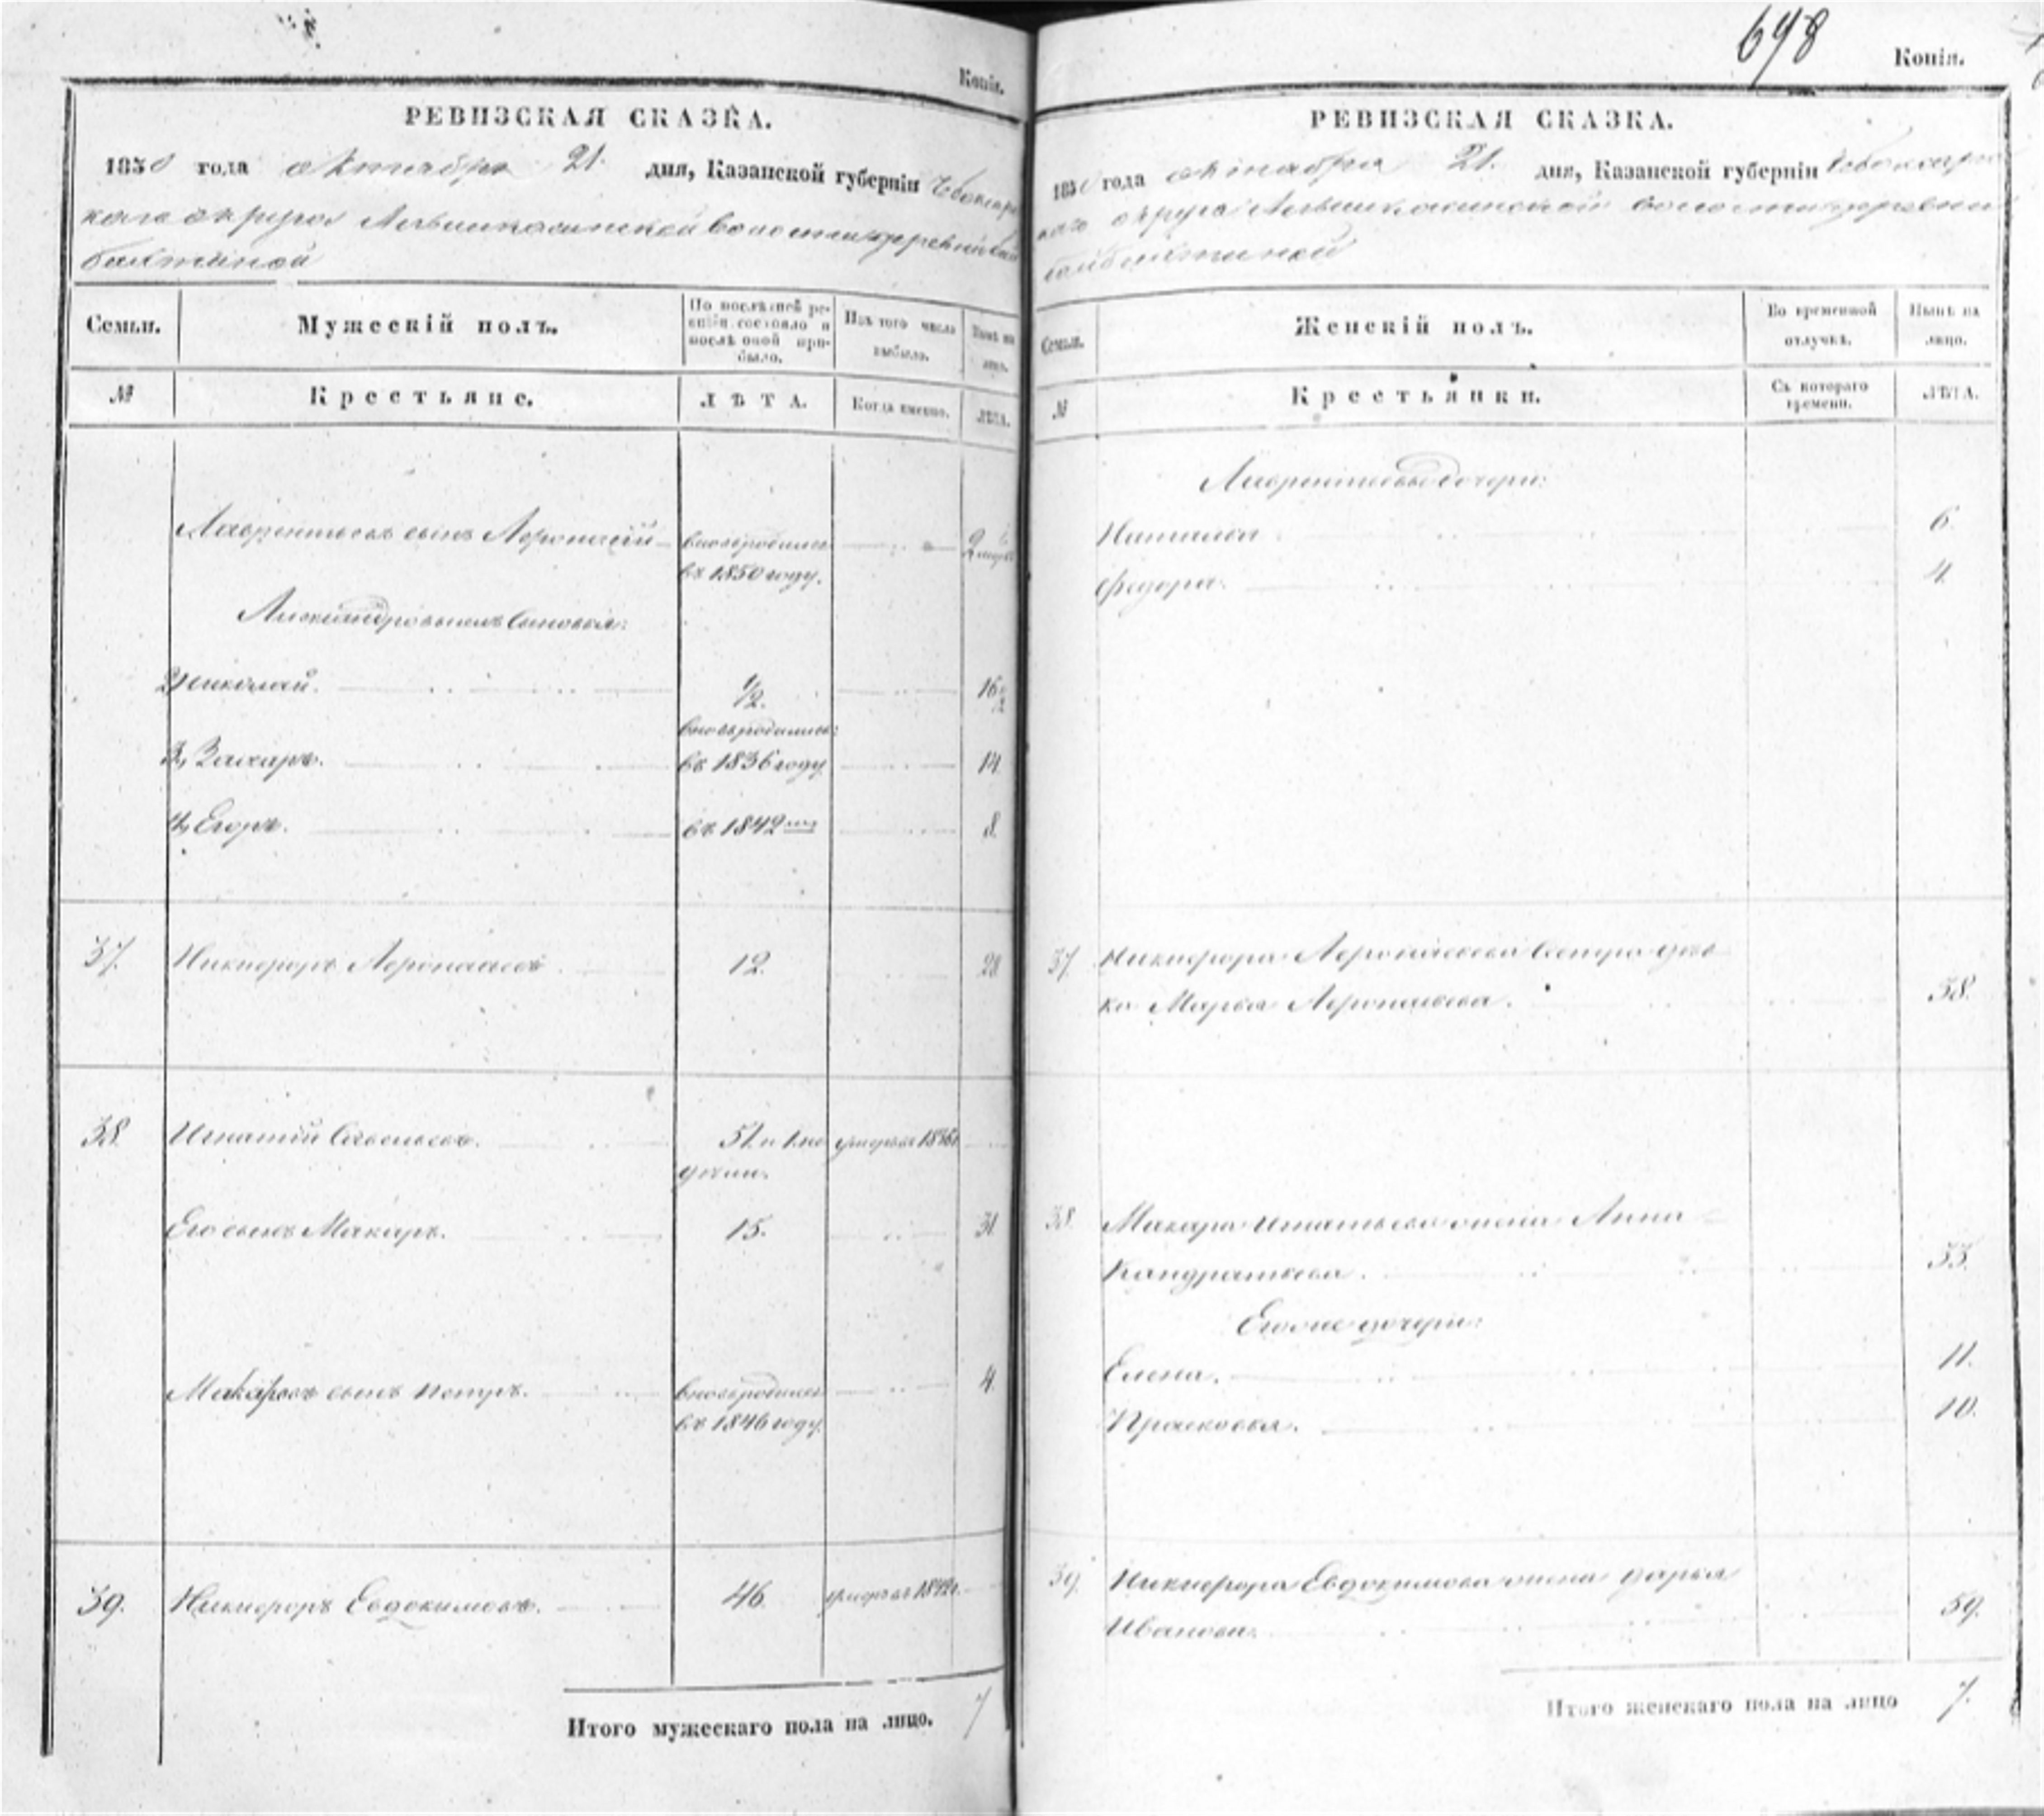 Копія.
РЕВИЗСКАЯ СКАЗКА.
1850 года октября 21. дня, Казанской губерніи Чебоксарс
каго округа волости деревни Бай
бахтиной
Семьи.
Мужескій полъ.
По послѣдней ре-
визіи состояло и
послѣ оной при-
было.
Изъ того числа
выбыло.
Нынѣ на
лицо.
№
Крестьяне.
ЛѢТА.
Когда именно.
ЛѢТА.
Лаврентьевъ сынъ Афонасій вновьродился 2 недѣль
въ 1850 году.
Александровы сыновья:
2, Николай. 1/2. 16 1/2
вновьродились:
3, Захаръ. въ 1836 году 14.
4, Егоръ. въ 1842 8.
37. Никифоръ Афонасьевъ 12. 28
38. Игнатій Савельевъ. 51. умеръ въ 1836г.
Его сынъ Макаръ. 15. 31.
Макаровъ сынъ Петръ. вновьродился 4.
въ 1846 году.
39. Никифоръ Евдокимовъ. 46. умеръ въ 1842г.
Итого мужескаго пола на лицо. 7
698
Копія.
РЕВИЗСКАЯ СКАЗКА.
1850 года октября 21. дня, Казанской губерніи Чебоксарс
каго округа волости деревни
Байбахтиной
Семьи.
Женскій полъ.
Во временной
отлучкѣ.
Нынѣ на
лицо.
№
Крестьянки.
Съ котораго
времени.
ЛѢТА.
Лаврентьевы дочери:
Наталья 6.
Федора. 4.
37. Никифора Афонасьева сестра дѣв
ка Марья Афонасьева. 38.
38. Макара Игнатьева жена Анна
Кандратьева. 33.
Егоже дочери:
Елена. 11.
Прасковья. 10.
39. Никифора Евдокимова жена Дарья
Иванова. 59.
Итого женскаго пола на лицо 7.